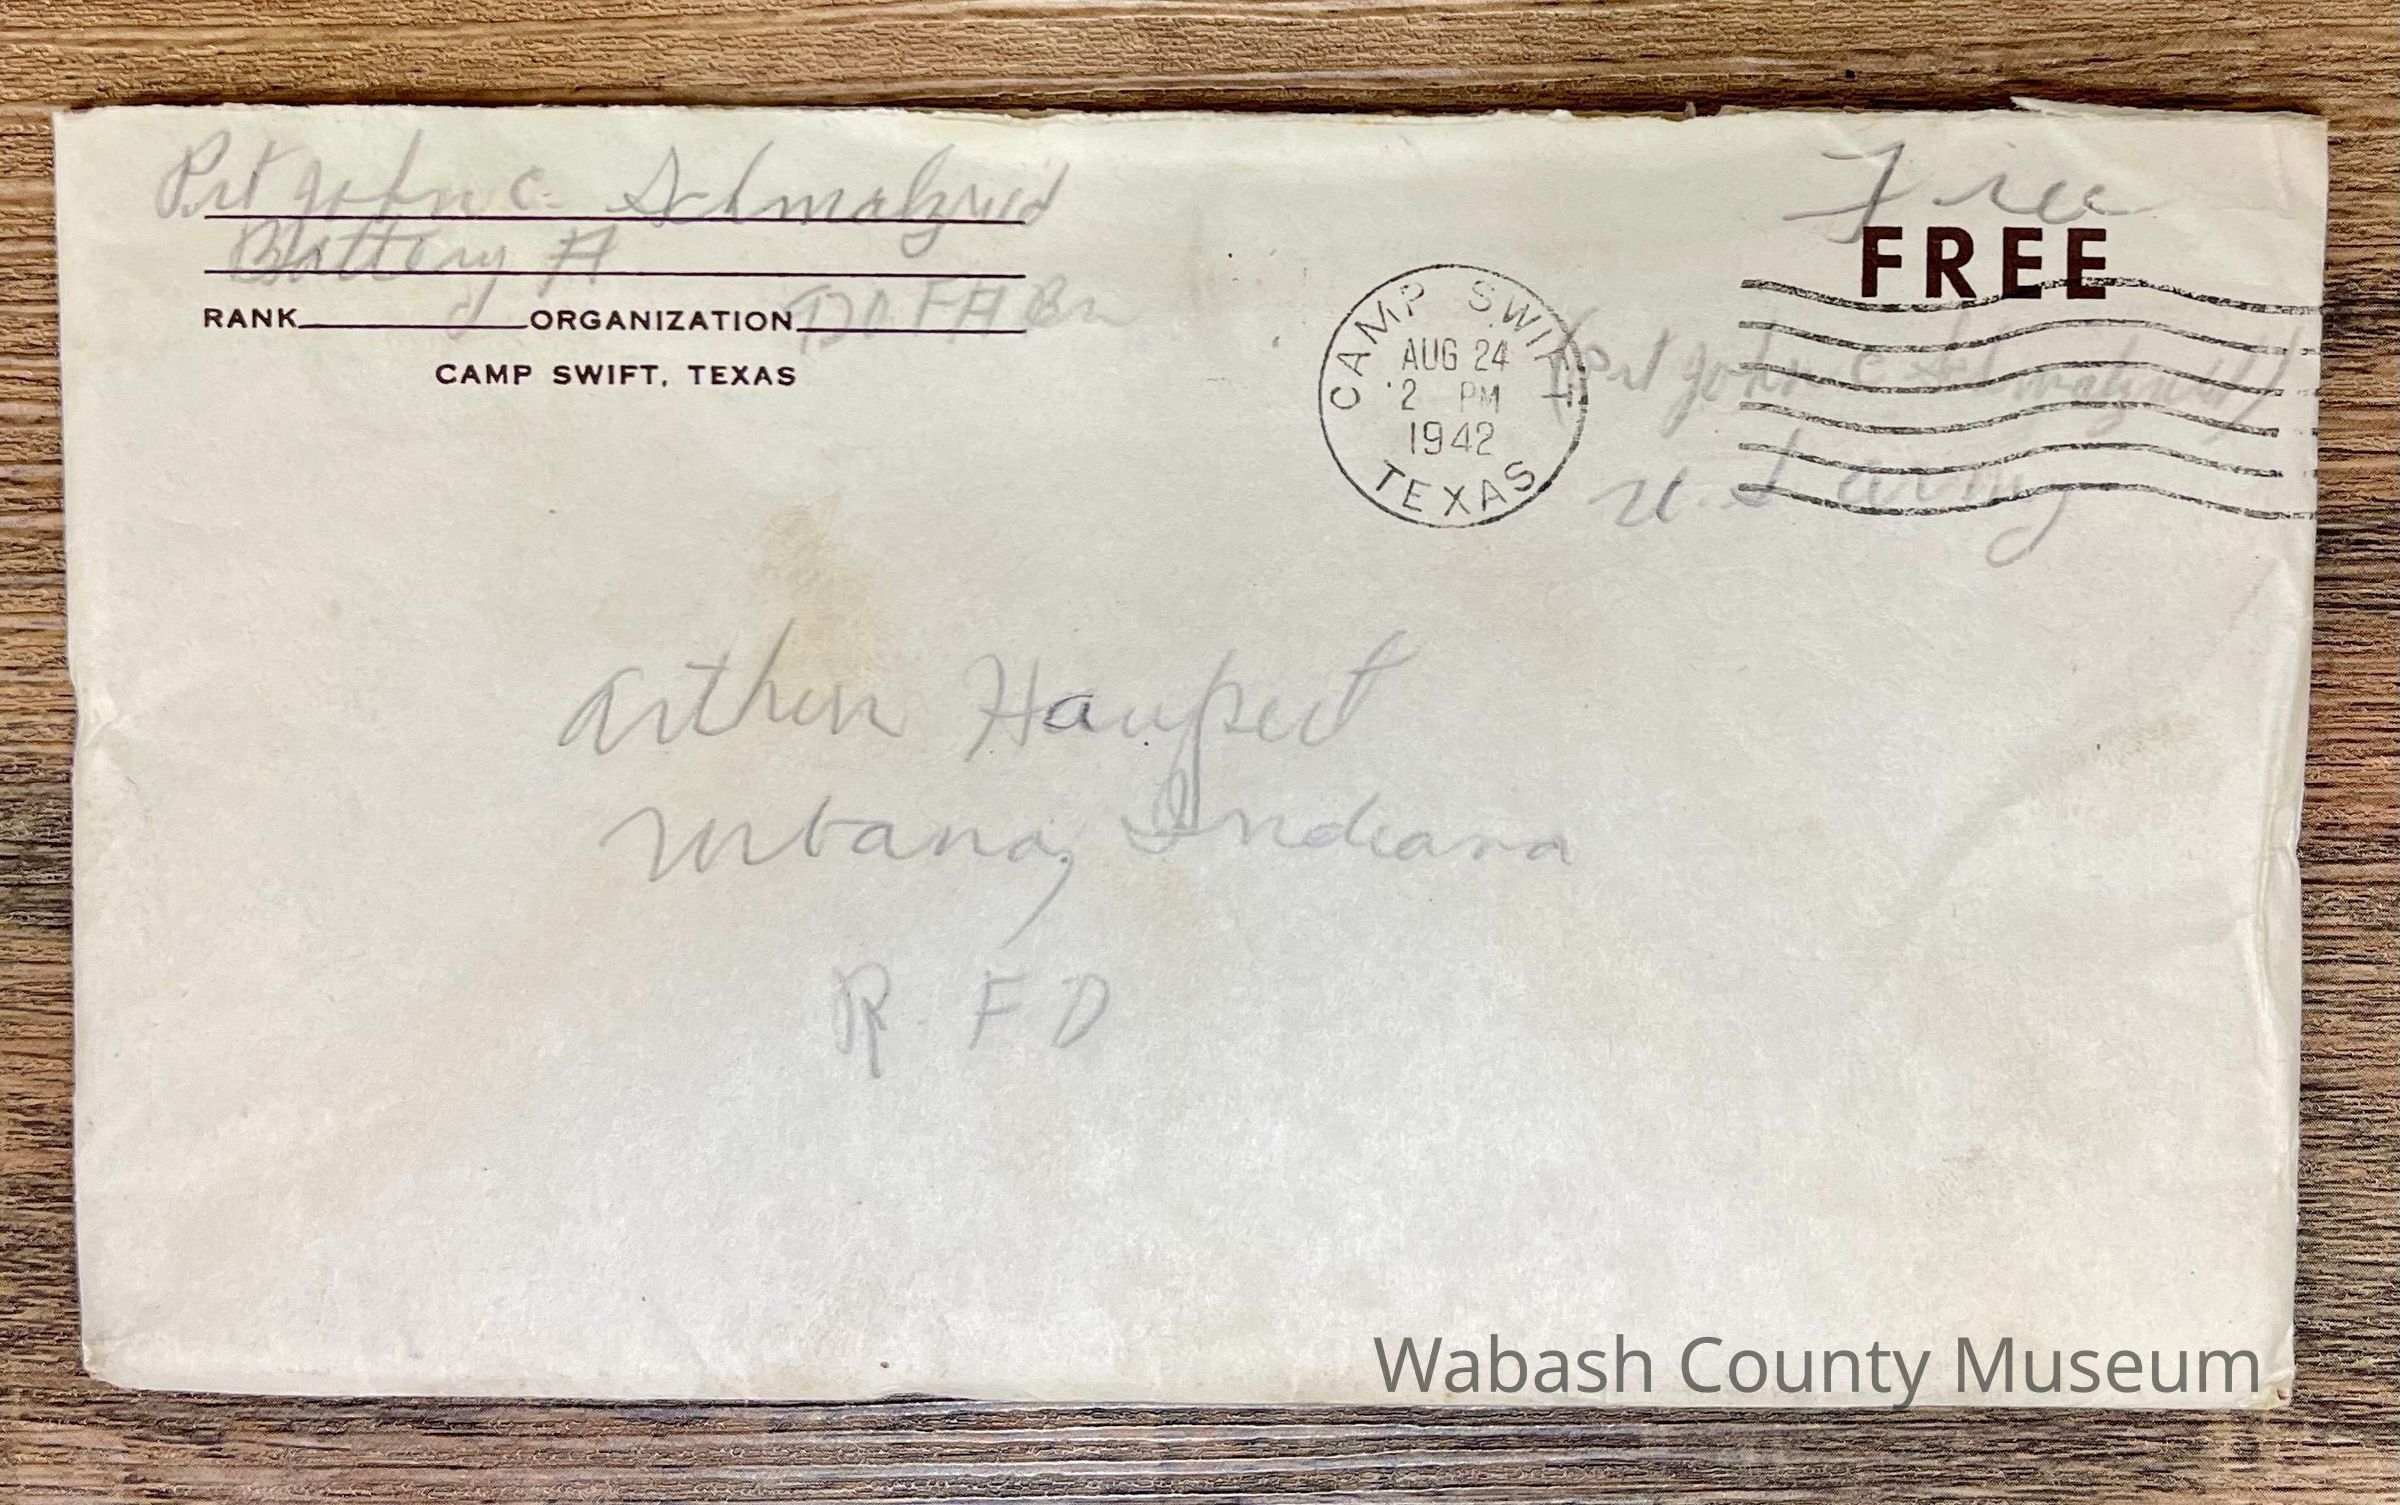 Pvt John C. Schmalzried
Battery A
RANK ORGANIZATION FA Bn
CAMP SWIFT, TEXAS
Free
FREE
CAMP SWIFT
AUG 24
2 PM
1942
TEXAS
(Pvt John C Schmalzried)
U.S army
Arthur Haupert
Urbana, Indiana
R F D
Wabash County Museum